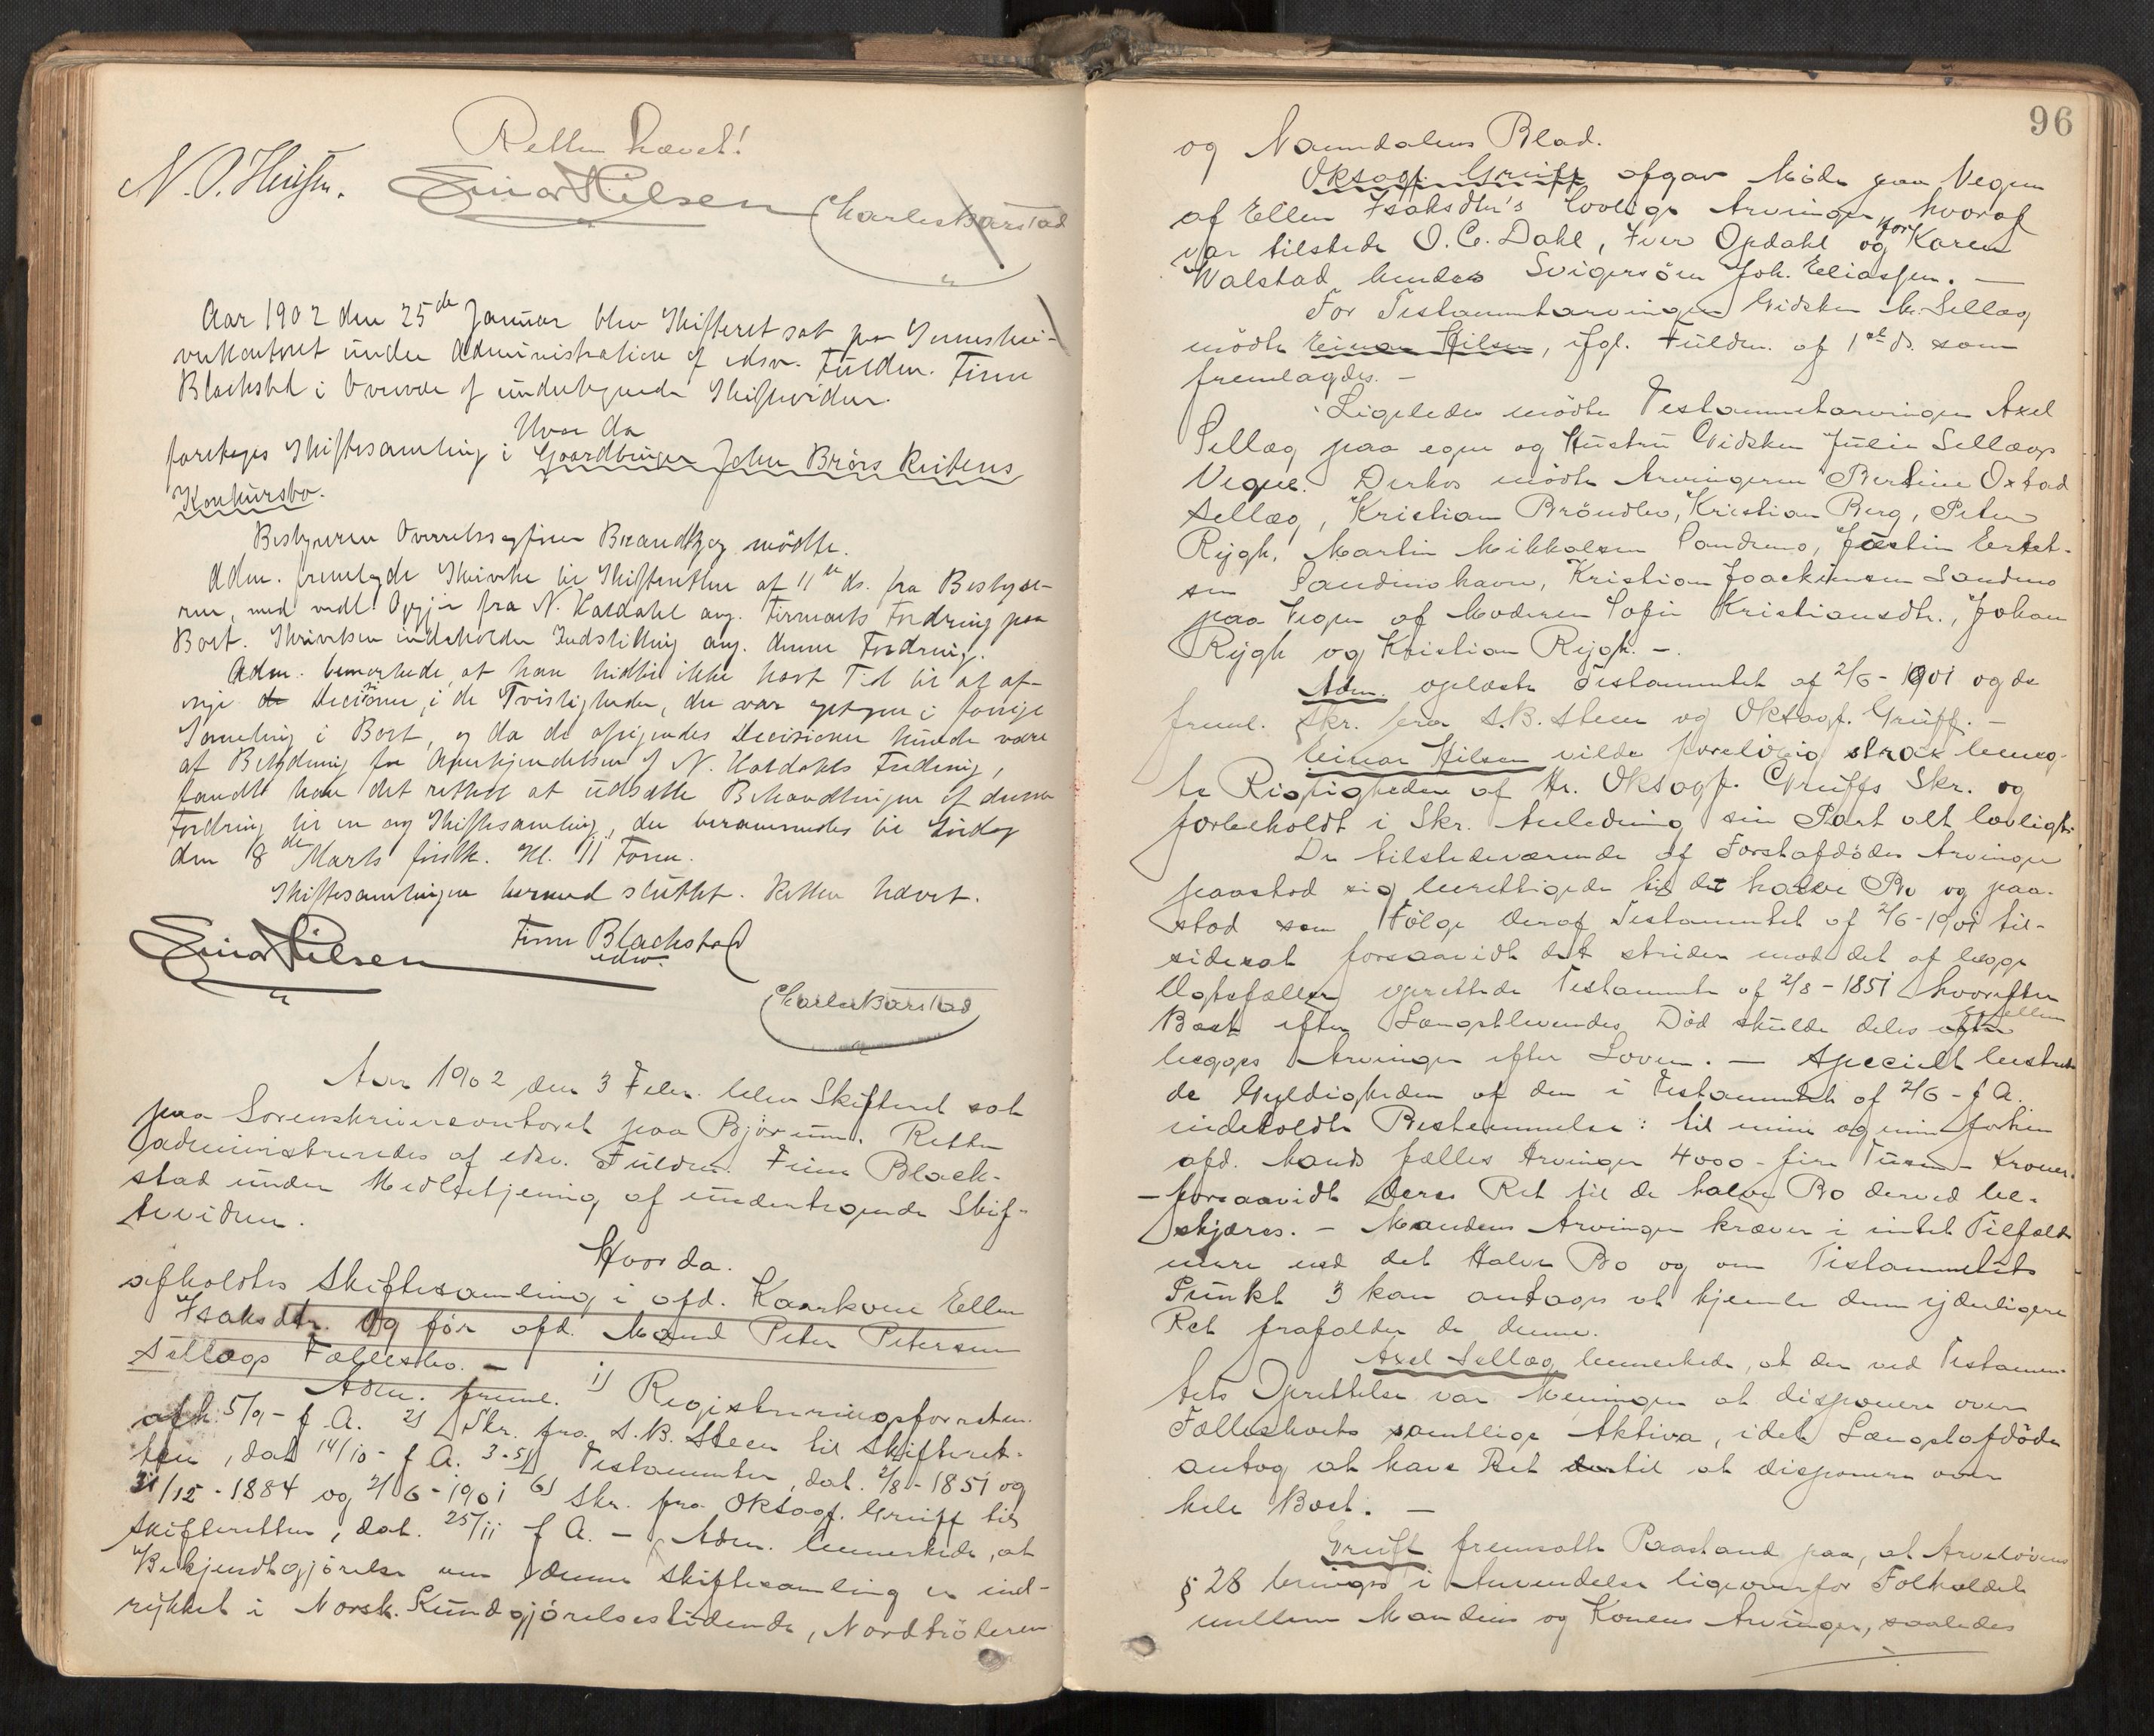 Retten hævet!
N. O. Heitsen. Einar Hilsen Charles Barstad
Aar 1902 den 25de Januar blev Skifteret sat paa Sorenskri-
verkontoret under Administration af edsv. Fuldm. Finn
Blackstad i Overvær af undertegnede Skiftevidner.
Hvor da
foretoges Skiftesamling i Gaardbruger John Brørs Reitens
Konkursbo.
Bestyreren Overretssagfører Brandtzæg mødte.
Adm. fremlagde Skrivelse til Skifteretten af 11te ds. fra Bestyre-
ren, med vedl. Opgjør fra N. Hatdahl ang. Firmaets Fordring paa
Boet. Skrivelsen indeholder Indstilling ang. denne Fordring.
Adm. bemærkede, at han hidtil ikke havt Tid til at af-
sige Decisioner, i de Tvistigheder, der var optagne i forrige
Samling i Boet, og da de afsigendes Decisioner kunde være
af Betydning for Anerkjendelsen af N. Hatdahls Fordring,
fandt han det rettest at udsætte Behandlingen af denne
Fordring til en ny Skiftesamling, der berammedes til Lørdag
den 8de Marts førstk. Kl. 11 Form.
Skiftesamlingen hermed sluttet. Retten hævet.
Einar Hilsen Finn Blackstad
edsv.
Charles Barstad
Aar 1902 den 3 Febr. blev Skifteret sat
paa Sorenskriverkontoret paa Bjørum. Retten
administreredes af edsv. Fuldm. Finn Black-
stad under Medbetjening af undertegnede Skif-
tevidner.
Hvor da.
afholdtes Skiftesamling i afd. Kaarkone Ellen
Isaksdtr. og før afd. Mand Peter Petersen
Sellægs Fællesbo. –
Adm. freml. 1) Registreringsforretn.
afh. 5/9 – f. A. 2) Skr. fra S. B. Steen til Skifteret-
ten, dat. 14/10 – f. A. 3-5) Testamenter, dat. 2/8 – 1851 og
31/12 - 1884 og 2/6 - 1901 6) Skr. fra Oksagf. Gruff til
Skifteretten, dat. 25/11 f. A. – Adm. bemerkede, at
Bekjendtgjørelse om denne Skiftesamling er ind-
rykket i Norsk. Kundgjørelsestidende, Nordtrønderen
96
og Namdalens Blad.
Oksagf. Gruff afgav Møde paa Vegne
af Ellen Isaksdtr's lovlige Arvinger, hvoraf
var tilstede O. C. Dahl, Iver Opdahl og for Karen
Walstad hendes Svigersøn Joh. Eliassen. –
For Testamentarvingen Gidsken M. Sellæg
mødte Einar Hilsen, ifgl. Fuldm. af 1st ds. som
fremlagdes. –
Ligeledes mødte Testamentarvingen Axel
Sellæg paa egne og Hustru Gidsken Julie Sellægs
Vegne. Derhos mødte Arvingerne Bertine Oxtad
Sellæg, Kristian Brøndbo, Kristian Berg, Peter
Rygh, Martin Mikkalsen Sandmo, Justin Bertel-
sen Sandmohavn, Kristian Joackimsen Sandmo
paa Vegne af Moderen Sofie Kristiansdtr., Johan
Rygh og Kristian Rygh. –
Adm. oplæste Testamentet af 2/6 - 1901 og de
freml. Skr. fra S.B. Steen og Oksagf. Gruff. –
Einar Hilsen vilde foreløbig strax beneg-
te Rigtigheden af Hr. Oksagf. Gruffs Skr. og
forbeholdt i Skr. Anledning sin Part alt lovligt.
De tilstedeværende af Førstafdødes Arvinger
paastod sig berettigede til det halve Bo og paa-
stod som Følge deraf Testamentet af 2/6 - 1901 til-
sidesat forsaavidt det strider mod det af begge
Ægtefæller oprettede Testamente af 2/8 - 1851 hvorefter
Boet efter Længstlevendes Død skulde deles mellem
begges Arvinger efter Loven. – Specielt bestred
de Gyldigheden af den i Testamentet af 2/6 - f. A.
indeholdte Bestemmelse: til mine og min forhen
afd. Mands fælles Arvinger 4000 - fire Tusen - Kroner.
– forsaavidt deres Ret til de halve Bo derved be-
skjæres. – Mandens Arvinger kræver i intet Tilfælde
mere end det Halve Bo og om Testamentets
Punkt 3 kan antages at hjemle dem yderligere
Ret frafalder de denne.
Axel Sellæg bemerkede, at der ved Testamen-
tets Oprettelse var Meningen at disponere over
Fællesboets samtlige Aktiva, idet Længstafdøde
antog at have Ret dertil at disponere over
hele Boet. –
Gruff fremsatte Paastand paa, at Arvelovens
§ 28 bringes i Anvendelse ligeoverfor Forholdet
mellem Mandens og Konens Arvinger, saaledes